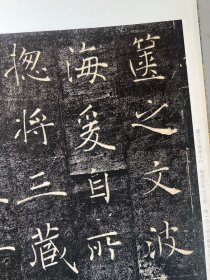 篋之文波
海爰自所
揔將三藏